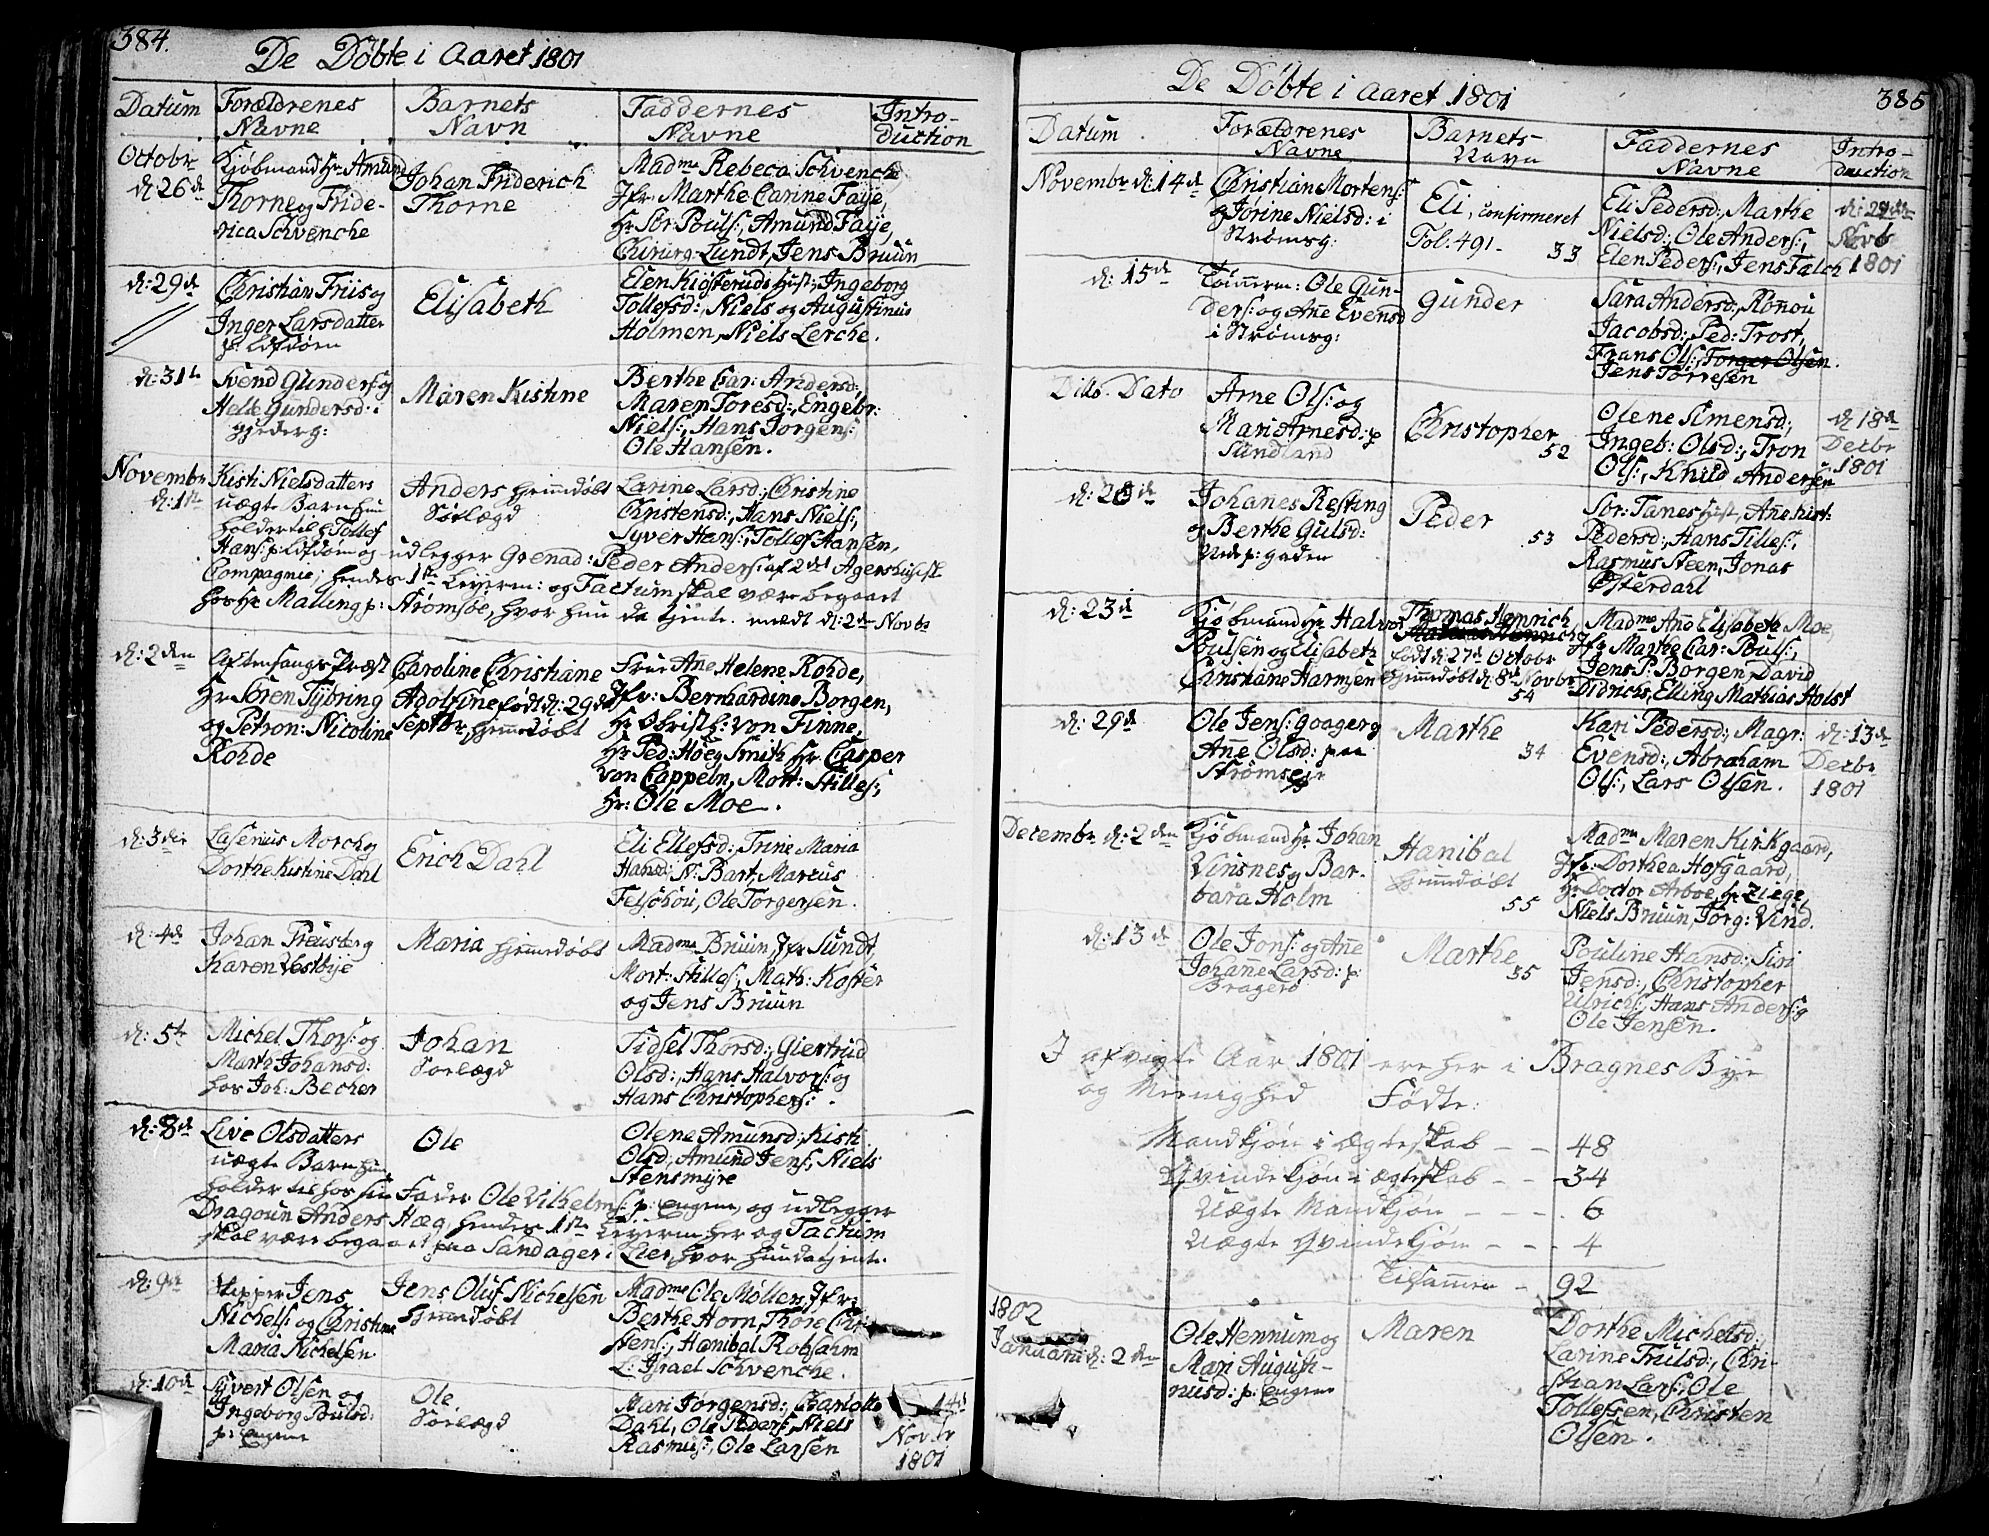 384.
De Döbte i Aaret 1801
Datum
Forældrenes
Navne
Barnets
Navn
Faddernes
Navne
Intro-
duction
Octobr
d: 26de
Kjöbmand Hr Amund
Thorne og Fride-
rica Schvenche
Johan Friderich
Thorne
Madme Rebeca Schvenche
Jfr: Marthe Carine Faye,
Hr Sör: Pouls:, Amund Faye,
Chirurg: Lundt, Jens Bruun
d: 29de
Christian Friis og
Inger Larsdatter
Elisabeth
Elen Kiösteruds Hust:, Ingeborg
Tollefsd:, Niels og Augustinus
Holmen, Niels Lerche.
d: 31te
Svend Gunders: og
Helle Gundersd: i
Maren Kistine
Berthe Car: Andersd:,
Maren Toresd:, Engebr:
Niels:, Hans Jörgens:
Ole Hansen.
Novembr
d: 1te
Kisti Nielsdatters
uægte Barn hun
holder til hos Tollef
Hans: p:
Anders hjemmedöbt
Larine Larsd:, Christine
Christensd:, Hans Niels:,
Syver Hans:, Tollef Hansen,
og udlegger Grenad: Peder Anders: af 2det Agershusiske
Compagnie; hendes 1ste Leyerm: og Factum skal være begaaet
hos Hr Malling p: Strömsöe, hvor hun da tjente. mældt d: 2den Novbr
d: 2den
Aftensangs Præst
Hr Sören Tybring
og Petron: Nicoline
Rohde
Caroline Christiane
Adolfine födt d: 29de
Septbr, hjemmedöbt
Frue Ane Helene Rohde,
Jfr: Bernhardine Borgen,
Hr Christ: von Finne,
Hr Ped: Höeg Smith Hr Casper
von Cappeln, Mort: Stilles:,
Hr: Ole Moe.
d: 3die
Lasenius Morch og
Dorthe Kistine Dahl
Erich Dahl
Eli Ellefsd:, Trine Maria
Hansd: N: Bart, Marcus
Felschou, Ole Torgersen.
d: 4de
Johan Freusberg
Karen Vestbye
Maria hjemmedöbt
Madme Bruun, Jfr Sundt,
Mort: Stilles:, Math: Koster
og Jens Bruun
d: 5te
Michel Thors: og
Marth Johansd:
hos Joh: Becher
Johan
Sidsel Thorsd:, Giertrud
Olsd:, Hans Halvors: og
Hans Christophers:.
d: 8de
Live Olsdatters
uægte Barn hun
Ole
Olene Amunsd:, Kisti
Olsd:, Amund Jens:, Niels
Stensmyre
holder til hos sin Fader Ole Vilhelms: p: Engene, og udlegger
Dragoun Anders Hæg, hendes 1ste Leyerm her og Factum
skal være begaaet paa Sandager i Lier, hvor hun da tjente.
d: 9de
Skipper Jens
Michels: og Christine
Maria Michelsen
Jens Oluf Michelsen
hjemmedöbt
Madme Ole Möller, Jfr:
Berthe Horn, Thore Chri
stens:, Hanibal Robsahm
L: Israel Schvenche.
d: 10de
Syvert Olsen og
Ingeborg Poulsd:
p: Engene
Ole.
Mari Jörgensd:, Charlotte
Dahl, Ole Peders:, Niels
Rasmus:, Ole Larsen
14de
Novbr
1801
De Döbte i Aaret 1801
385
Datum
Forældrenes
Navne
Barnets
Navn
Faddernes
Navne
Intro-
duction
Novembr d: 14de
Christian Mortens:
og Jörine Nielsd: i
Strömsg:
Eli, confirmeret
Fol. 491.
33
Eli Pedersd:, Marthe
Nielsd:, Ole Anders:,
Elen Peders:, Jens Falch
Novb
1801
d: 15de
Tömmerm: Ole Gun-
ders: og Ane Evensd
i Strömsg:
Gunder
Sara Andersd:, Ronou
Jacobsd:, Ped: Trost,
Frans Ols:, Torger Olsen.
Jens Torresen
Ditto Dato
Arne Ols: og
Mari Arnesd: p
Sundland
Christopher
52
Olene Simensd:,
Ingeb: Olsd:, Tron
Ols:, Knud Andersen
d: 18de
Decbr
1801
d: 20de
Johanes Resting
og Berthe Gulsd:
Peder
53
Sör: Tanes Hust, Ane Kist:
Pedersd:, Hans Tilles:,
Rasmus Steen, Jonas
Österdahl
d: 23de
Kjöbmand Hr Halvor
Poulsen og Elisabeth
Christiane Harmsen
Thomas Henrich
födt d: 27de Octobr
hjemmedöbt d: 8de Novbr
54
Madme Ane Elisabeth Moe,
Jfr Marthe Car: Pouls:,
Jens P: Borgen, David
Didrichs:, Elling Mathias Holst
d: 29de
Ole Jens: Goager og
Ane Olsd: paa
Strömsöe
Marthe
34
Kari Pedersd:, Magr:
Evensd:, Abraham
Ols:, Lars Olsen.
d: 13de
Decbr
1801
Decembr d: 2den
Kjöbmand Hr Johan
Vinsnes og Bar-
bara Holm
Hanibal
hjemmedöbt
55
Madme Maren Kirkgaard,
Jfr: Dorthea Hofgaard,
Hr Doctor Arboe, Hr Ziege,
Niels Bruun, Jörg: Vind.
d: 13de
Ole Jons: og Ane
Johanne Larsd: p:
Bragerö
Marthe
35
Pouline Hansd:, Siri
Jensd:, Christopher
Ulrichs:, Hans Anders: og
Ole Jensen.
I afvigte Aar 1801 ere her i Bragnes Bye
og Meenighed Födte:
Mandkjön i Ægteskab - - 48
Qvindekjön i ægteskab - - 34
Uægte Mandkjön - - - 6
Uægte Qvindekjön - - - 4
Tilsammen - 92
1802
Januarii d: 2den
Ole Hennum og
Mari August-
nusd: p: Engene
Maren
Dorthe Michelsd:,
Larine Trulsd:, Chri-
stian Lars:, Ole
Tollefsen, Christen
Olsen.